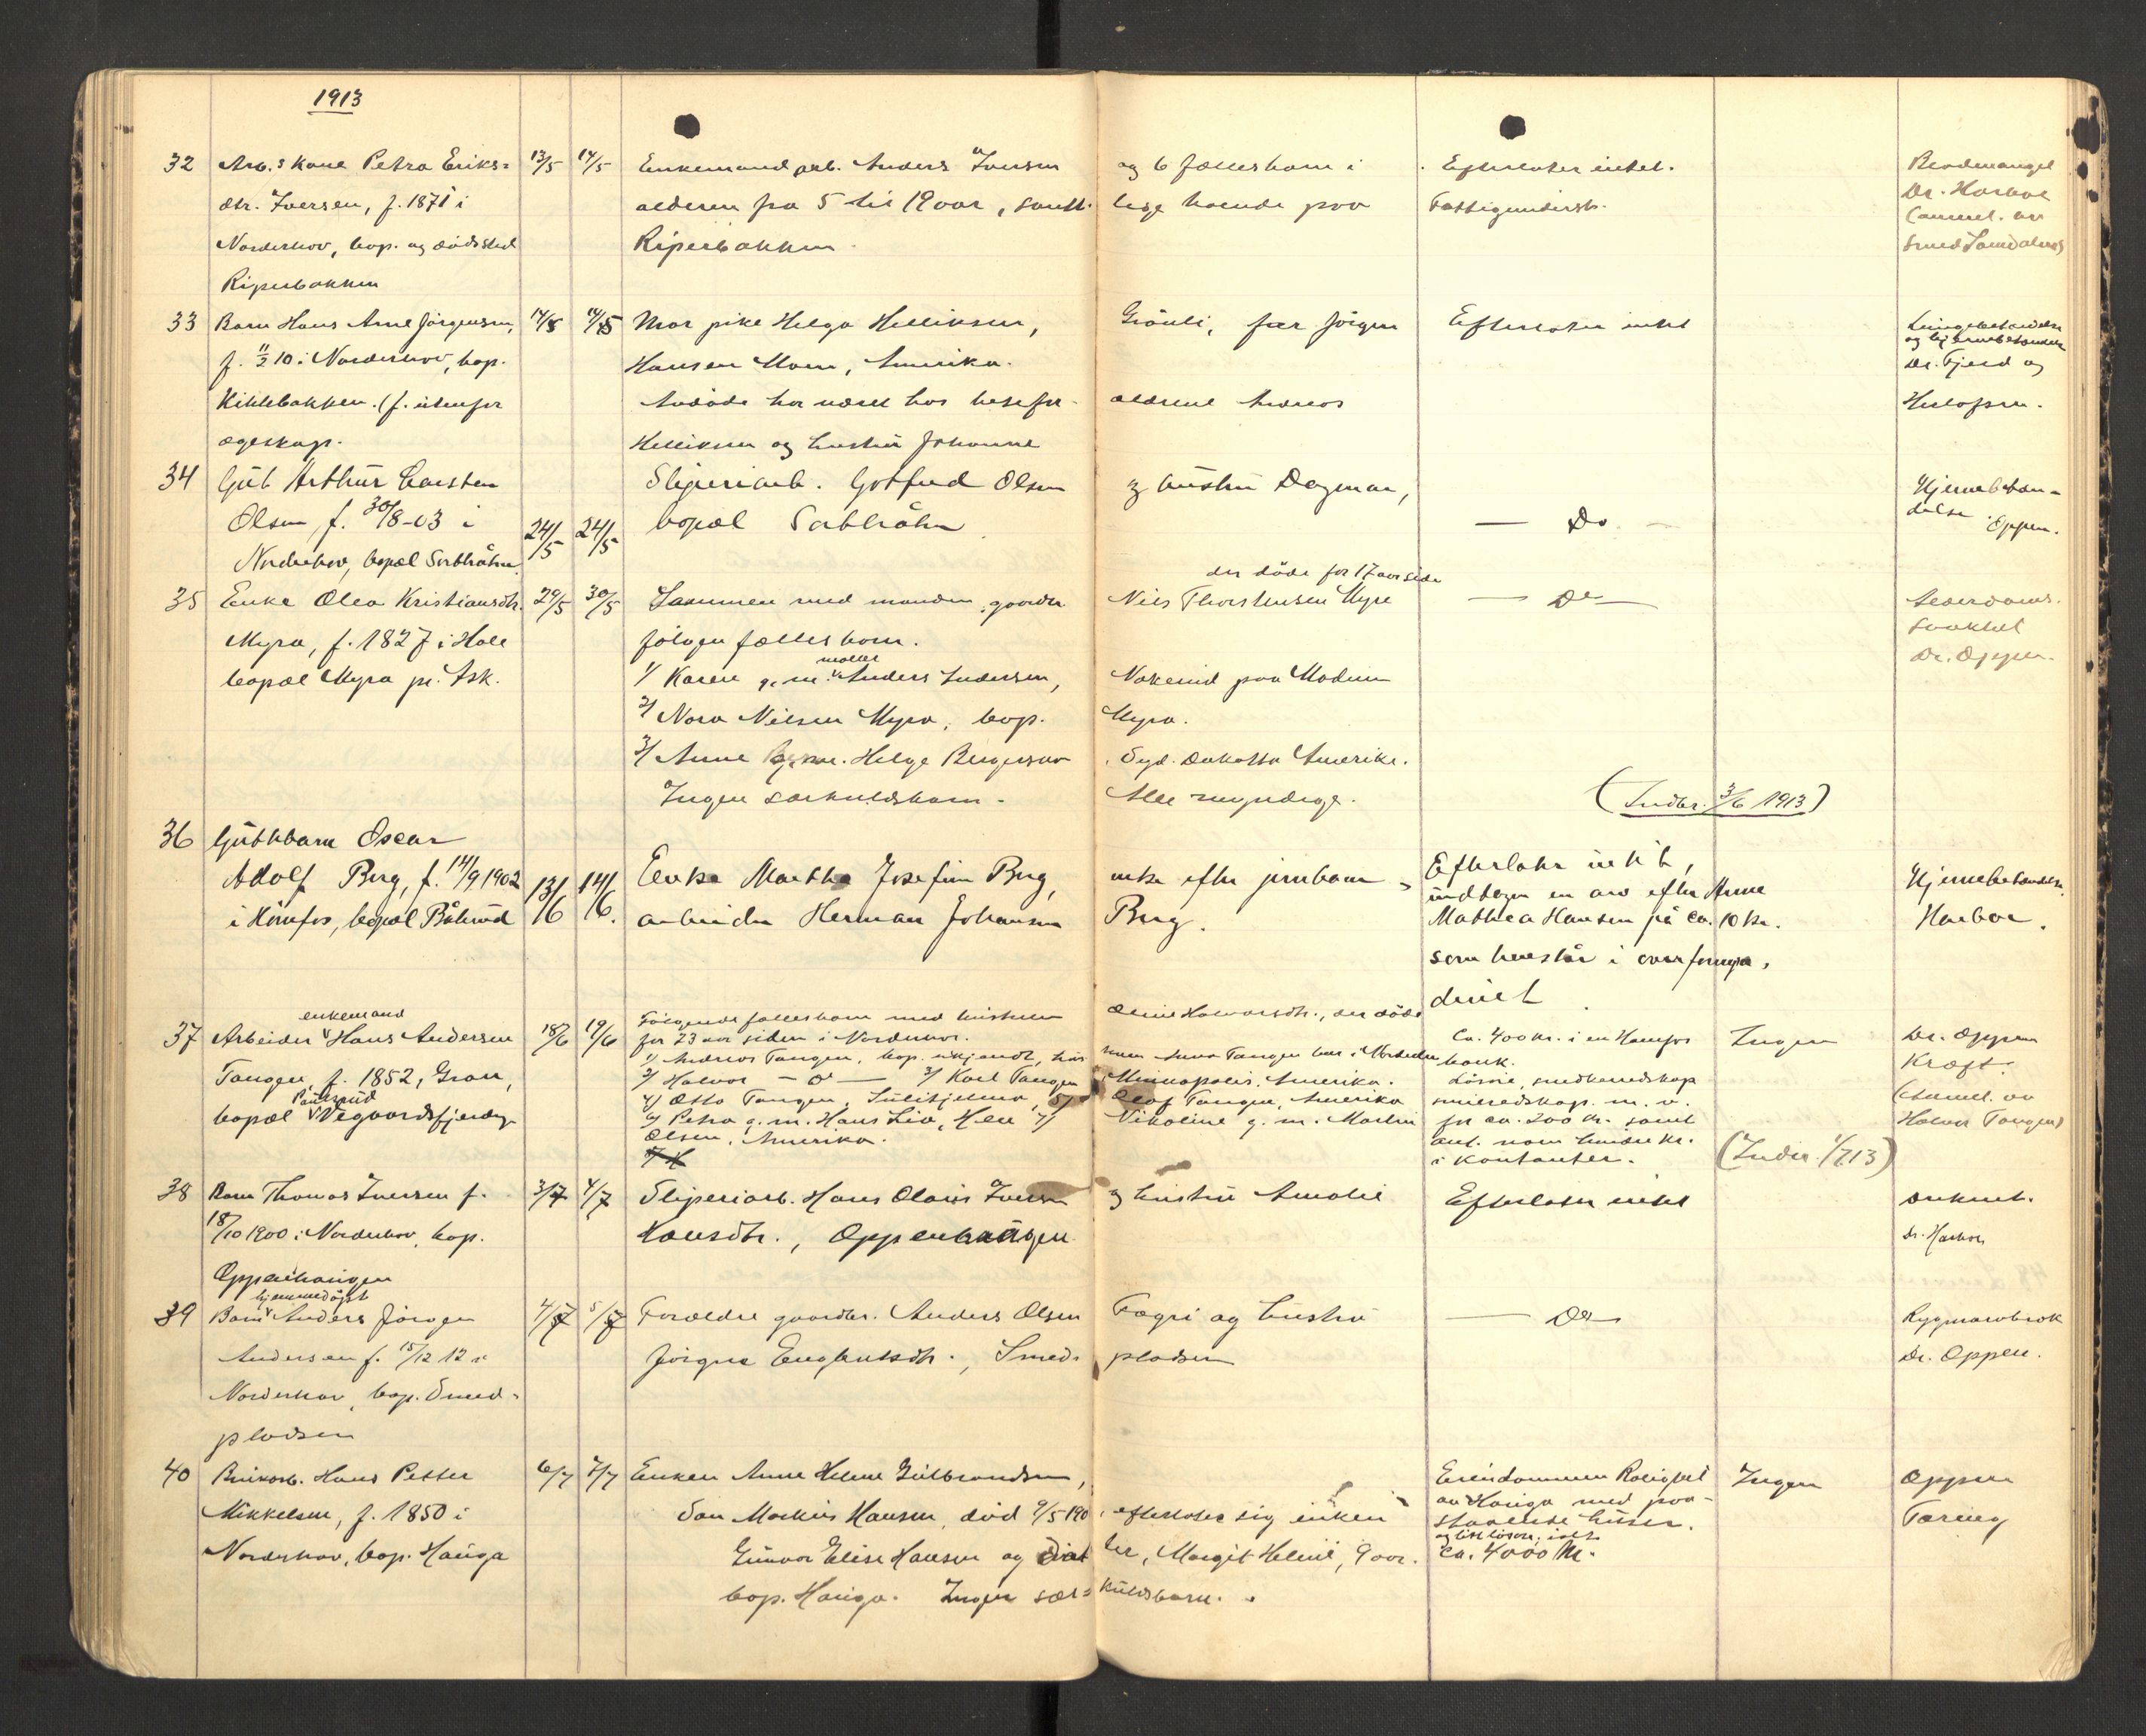 1913
32 Arb.s kone Petra Eriks= 13/5 14/5 Enkemand arb. Anders Iversen og 6 fællesbarn i Efterlater intet. Blodmangel
dtr. Iversen, f. 1871 i alderen fra 5 til 19 aar, samt- lige boende paa Fattigunderst. Dr. Harboe
Norderhov, bop. og dødssted Riperbakken (anmel. av
Riperbakken
33 Barn Hans Arne Jörgensen, 14/5 14/5 Mor pike Helga Helliksen, Grönli, far Jörgen Efterlater intet
f. 11/2 10 i Norderhov, bop. Hansen Moen, Amerika. og hjernebetændelse
Kiklebakken. (f. utenfor Avdöde har været hos besefor- ældrene Andreas Dr. Fjeld og
egteskap. Helliksen og hustru Johanne
34 Gut Arthur Carsten Sliperiarb. Gotfred Olsen og hustru Dagmar, Hjernebetæn-
Olsen, f. 30/8-03 i 24/5 24/5 bopæl — Do — delse. Oppen.
Norderhov, bopæl
der döde for 17 aar siden
35 Enke Olea Kristiansdtr. 29/5 30/5 Sammen med manden, gaardbr. Niels Thorstensen Myra — Do — Alderdoms-
Myra, f. 1827 i Hole følgen fælles barn. svakhet
bopæl Myra pr. Ask. 1/ Karen g. m. Anders Andersen, Nakerud paa Modum Dr. Oppen.
2/ Nora Nilsen Myra, bop. Myra.
3/ Anne g. m. Helge Bergersen Syd. Dakotta Amerika.
Ingen særkuldsbarn. Alle myndige. (Indbr. 3/6 1913)
36 Guttebarn Oscar
Adolf Berg, f. 14/9 1902 13/6 14/6. Enke Martha Josefine Berg, enke efter jernbane- Efterlater intet, Hjernebetændelse.
i Hönefos, bopæl arbeider Herman Johansen Berg. undtagen en arv efter Anne Harboe.
Mathea Hansen på ca. 10 kr.
som henstår i overformyn-
deriet
enkemand
37 Arbeider Hans Andersen 18/6 19/6 Følgende fællesbarn med hustruen Halvorsdtr., der döde Ca. 400 kr. i en Hönefos Ingen Dr. Oppen
Tangen, f. 1852, Gran, for 23 aar siden i Norderhov. bank. Kræft.
bopæl Vegaardsfjerdg. 1/ Andreas Tangen, bop. ukjendt, Løsøre, smedredskap (Anmel. av
2/ Halvor — do — 3/ Karl Tangen Minneapolis, Amerika. m. v. Halvor Tangen)
4/ Otto Tangen, Sulitjelma, 5/ Olaf Tangen, Amerika for ca. 200 kr. samt
6/ Petra g. m. Hans Lia, 7/ Nikoline g. m. Martin ant. noen hundre kr.
Olsen, Amerika. i kontanter. (Indbr. 1/7 13)
38 Barn Thomas Iversen f. 3/7 4/7 Sliperiarb. Hans Olaus Iversen og hustru Amalie Efterlater intet Druknet.
18/10 1900 i Norderhov, bop. Hansdtr., Oppenhaugen Dr. Harboe
Oppenhaugen
hjemmedöpt
39 Barn Anders Jörgen 4/7 5/7 Forældre gaardbr. Anders Olsen Fagri og hustru — Do — Rygmarvsbrok
Andersen f. 15/12 12 i Jörgine Engebretsdtr., Smed- pladsen Dr. Oppen.
Norderhov, bop. Smed-
pladsen
40 Bruksarb. Hans Petter 6/7 7/7 Enken Anne Helene Gulbrandsen, Eiendommen Rolighet Ingen Oppen
Mikkelsen, f. 1850 i Søn Markus Hansen, død 9/5 190 , efterlater sig enken av Hauga med paa- Tæring
Norderhov, bop. Hauga Gunvor Elise Hansen og dat- ter, Margit Heline, 9 aar. staaende huser.
og litt løsøre, ialt
bop. Hauga. Ingen sær= kuldsbarn. ca. 4000 kr.